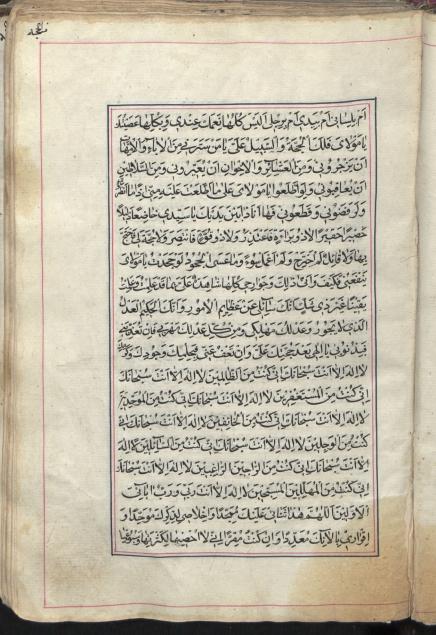 ام بلساني ام بيدي ام برجلي اليس كلها نعمك عندي وبكلها عصيتك
يا مولاي فلك الحجة والسبيل علي يا من سترني من الآباء والامهات
ان يزجروني ومن العشاير والاخوان ان يعيروني ومن السلاطين
ان يعاقبوني ولو اطلعوا يا مولاي على ما اطلعت عليه مني اذا ما انظروني
ولرفضوني وقطعوني فها انا ذا بين يديك يا سيدي خاضعا ذليلا
حصيرا حقيرا لا ذو براءة فاعتذر ولا ذو قوة فانتصر ولا حجة لي فاحتج
بها ولا قائل لم اجترح ولم اعمل سوءا وما عسى الجحود لو جحدت يا مولاي
ينفعني فكيف وانى ذلك وجوارحي كلها شاهدة علي بما قد علمت وعلمت
يقينا غير ذي شك انك سائلي عن عظايم الامور وانك الحكيم العدل
الذي لا يجور وعدلك مهلكي ومن كل عدلك مهربي فان تعذبني
فبذنوبي يا الهي بعد حجتك علي وان تعف عني فبحلمك وجودك وكرمك
لا اله الا انت سبحانك اني كنت من الظالمين لا اله الا انت سبحانك
اني كنت من المستغفرين لا اله الا انت سبحانك اني كنت من الموحدين
لا اله الا انت سبحانك اني كنت من الخائفين لا اله الا انت سبحانك اني
كنت من الوجلين لا اله الا انت سبحانك اني كنت من السائلين لا اله
الا انت سبحانك اني كنت من الراجين الراغبين لا اله الا انت سبحانك
اني كنت من المهللين المسبحين لا اله الا انت ربي ورب ابائي
الاولين اللهم هذا ثنائي عليك ممجدا واخلاصي لذكرك موحدا و
اقراري بالآئك معددا وان كنت مقرا اني لا احصيها لكثرتها وسبوغها